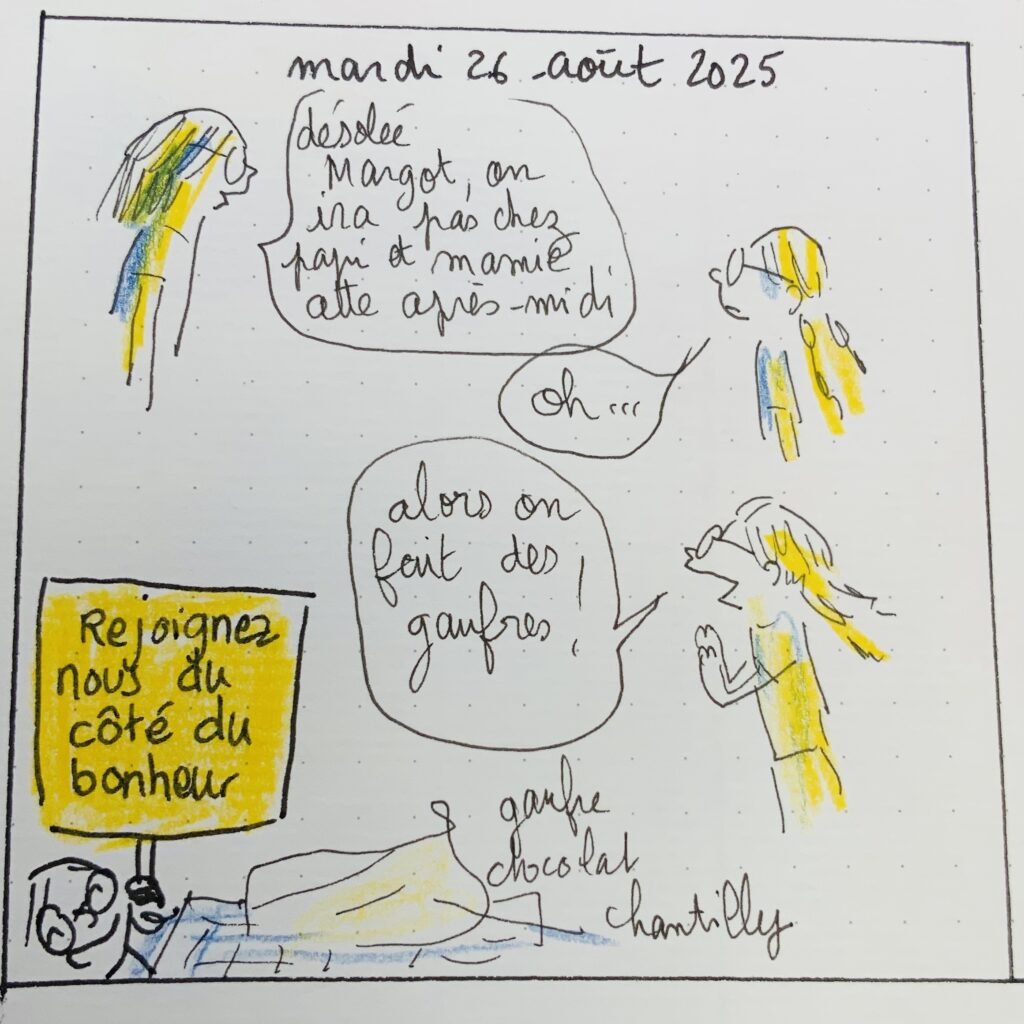 mardi 26 août 2025
désolée
Margot, on
ira pas chez
papi et mamie
cette après-midi
oh...
alors on
fait des
gaufres !
Rejoignez
nous du
côté du
bonheur
gaufre
chocolat
chantilly